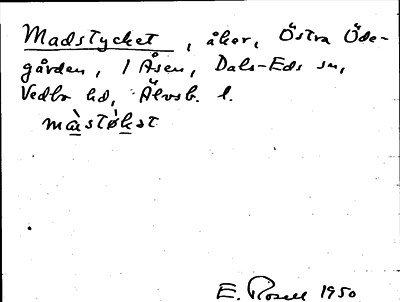 Madstycket, åker, Östra Öde-
gården, 1 Åsen, Dals-Eds sn,
Vedbo hd, Älvsb. l.
màstøkst
E. Rosell 1950